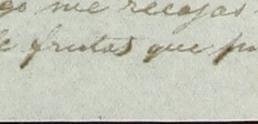 go me recojas
de frutas que pu